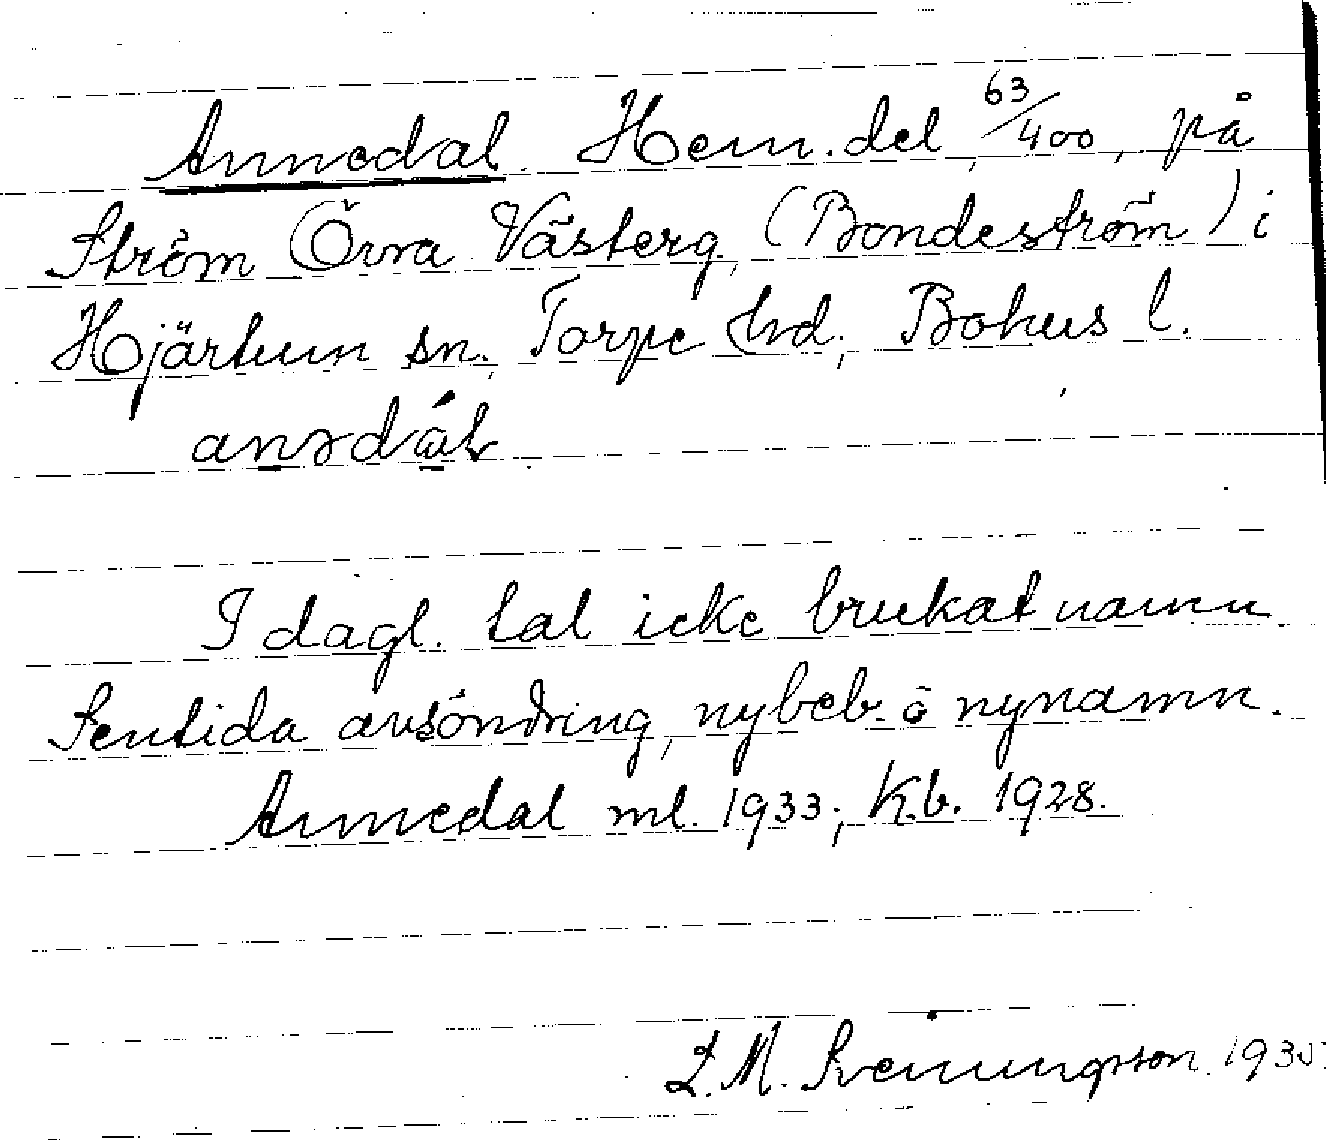 Annedal. Hem.del, 63/400, på
Ström Övra Västerg. (Bondeström) i
Hjärtum sn., Torpe hd., Bohus l.
I dagl. tal icke brukat namn
Sentida avsöndring, nybeb. o nynamn.
Annedal ml. 1933; K.b. 1928.
L. M. Sveningsson. 1935.